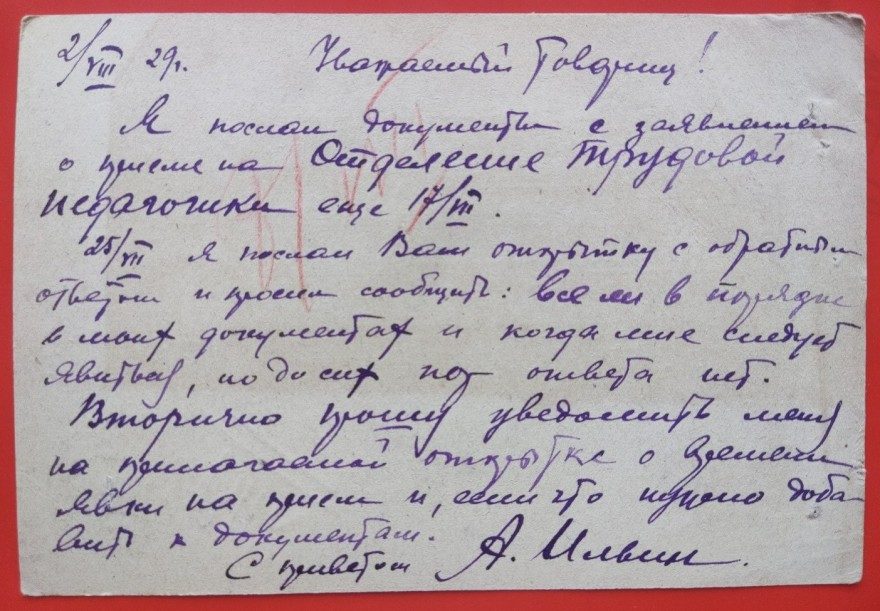 2/VIII 29г. Уважаемый Товарищ!
Я послал документы с заявлением
о приеме на Отделение Трудовой
Педагогики еще 17/VII.
25/VII я послал Вам открытку с обратным
ответом и просил сообщить: все ли в порядке
в моих документах и когда мне следует
явиться, но до сих пор ответа нет.
Вторично прошу уведомить меня
на прилагаемой открытке о времени
явки на прием и, если что нужно доба-
вить к документам.
С приветом А. Ильин.